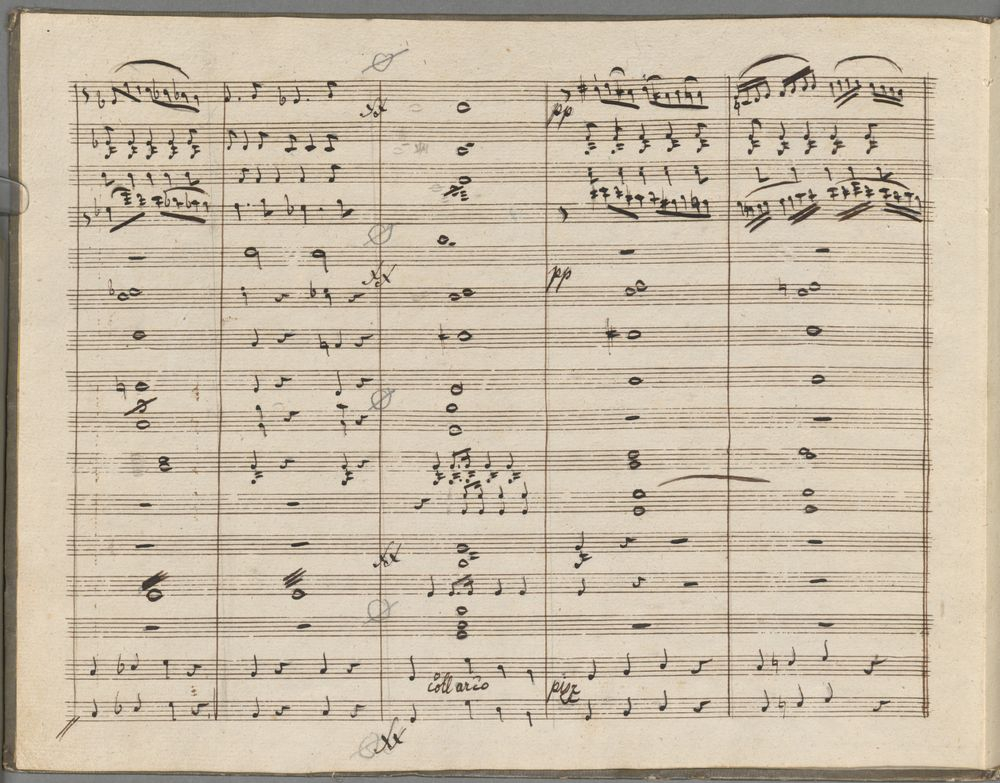 pp
pp
coll arco
pizz